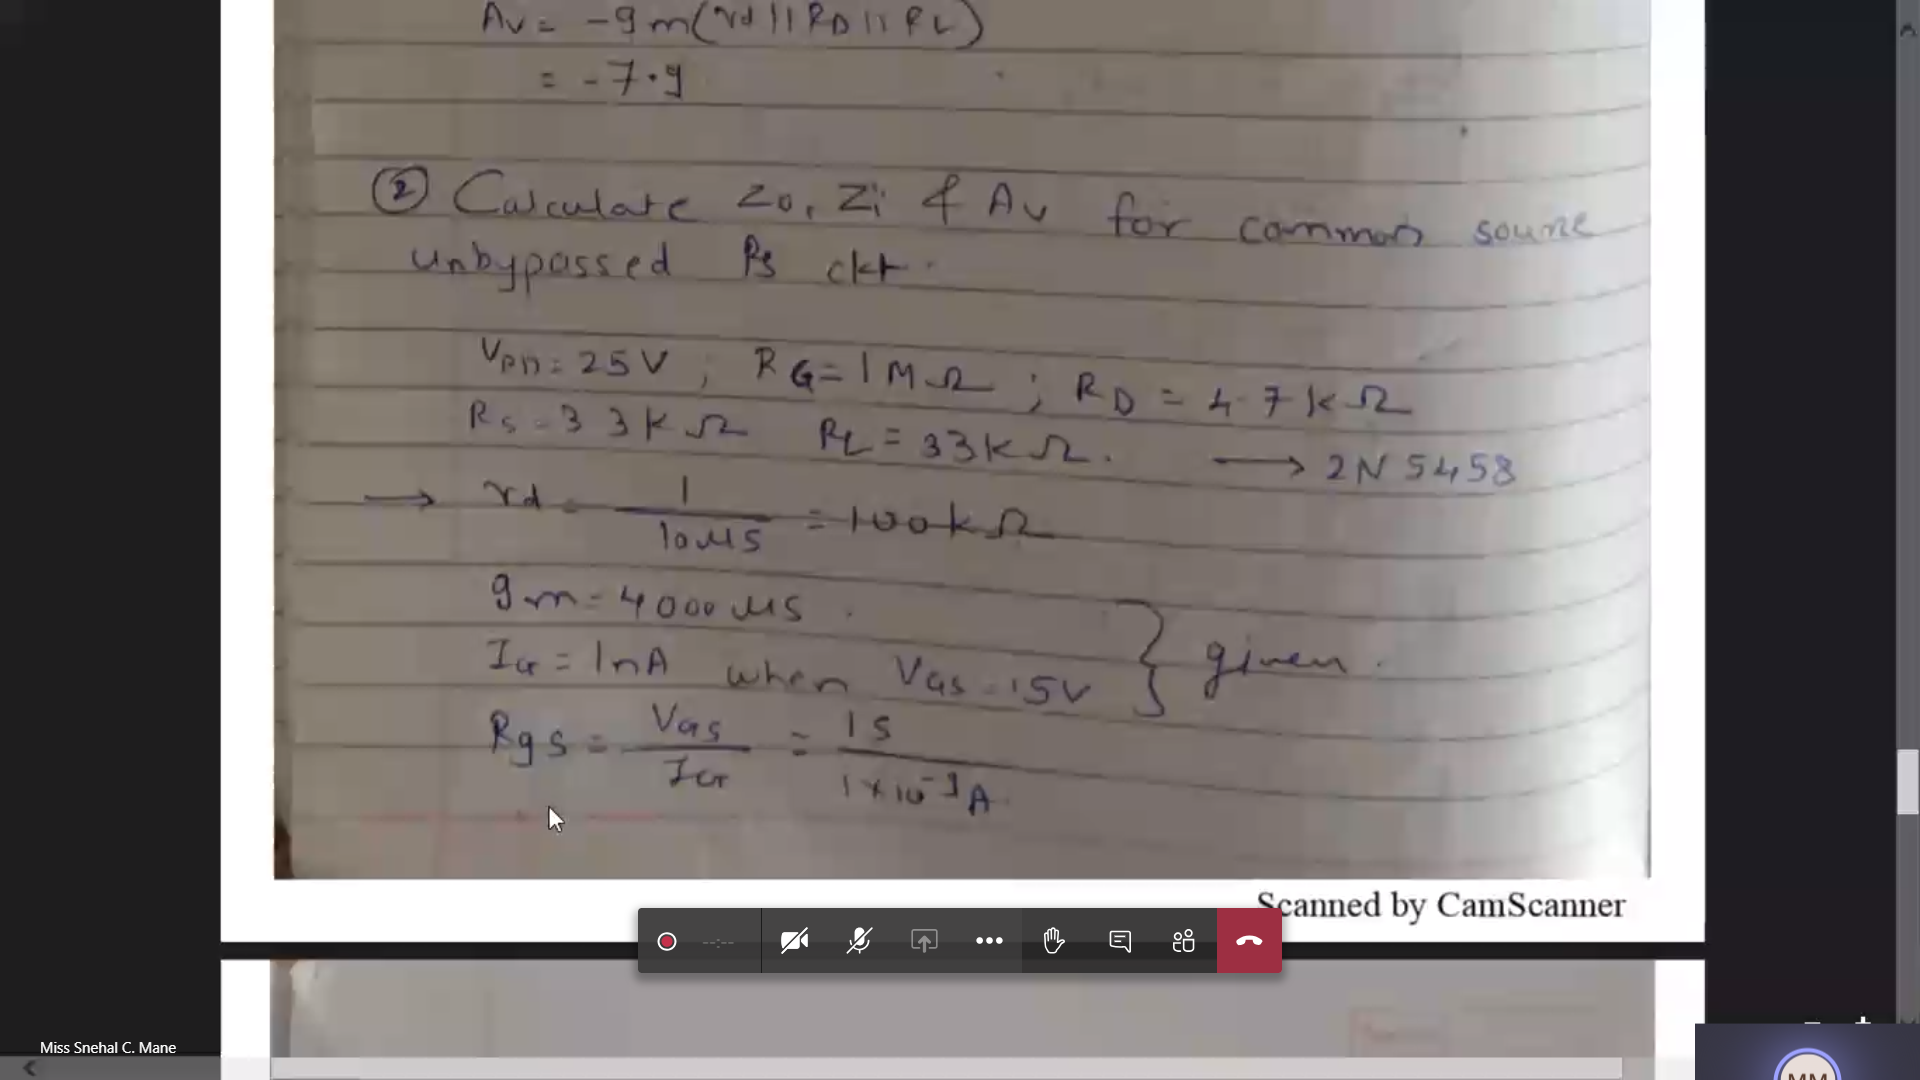 Av = -gm(rd || RD || RL)
= -7.9
② Calculate Zo, Zi & Av for common source
unbypassed Rs ckt.
VDD = 25V ; RG = 1MΩ ; RD = 4.7kΩ
Rs = 3.3kΩ RL = 33kΩ. → 2N5458
→ rd = 1/10μS = 100kΩ
gm = 4000μS.
IG = 1nA when VGS = 15V } given.
Rgs = VGS/IG = 15/1×10⁻⁹A.
Scanned by CamScanner
--:--
Miss Snehal C. Mane
MM